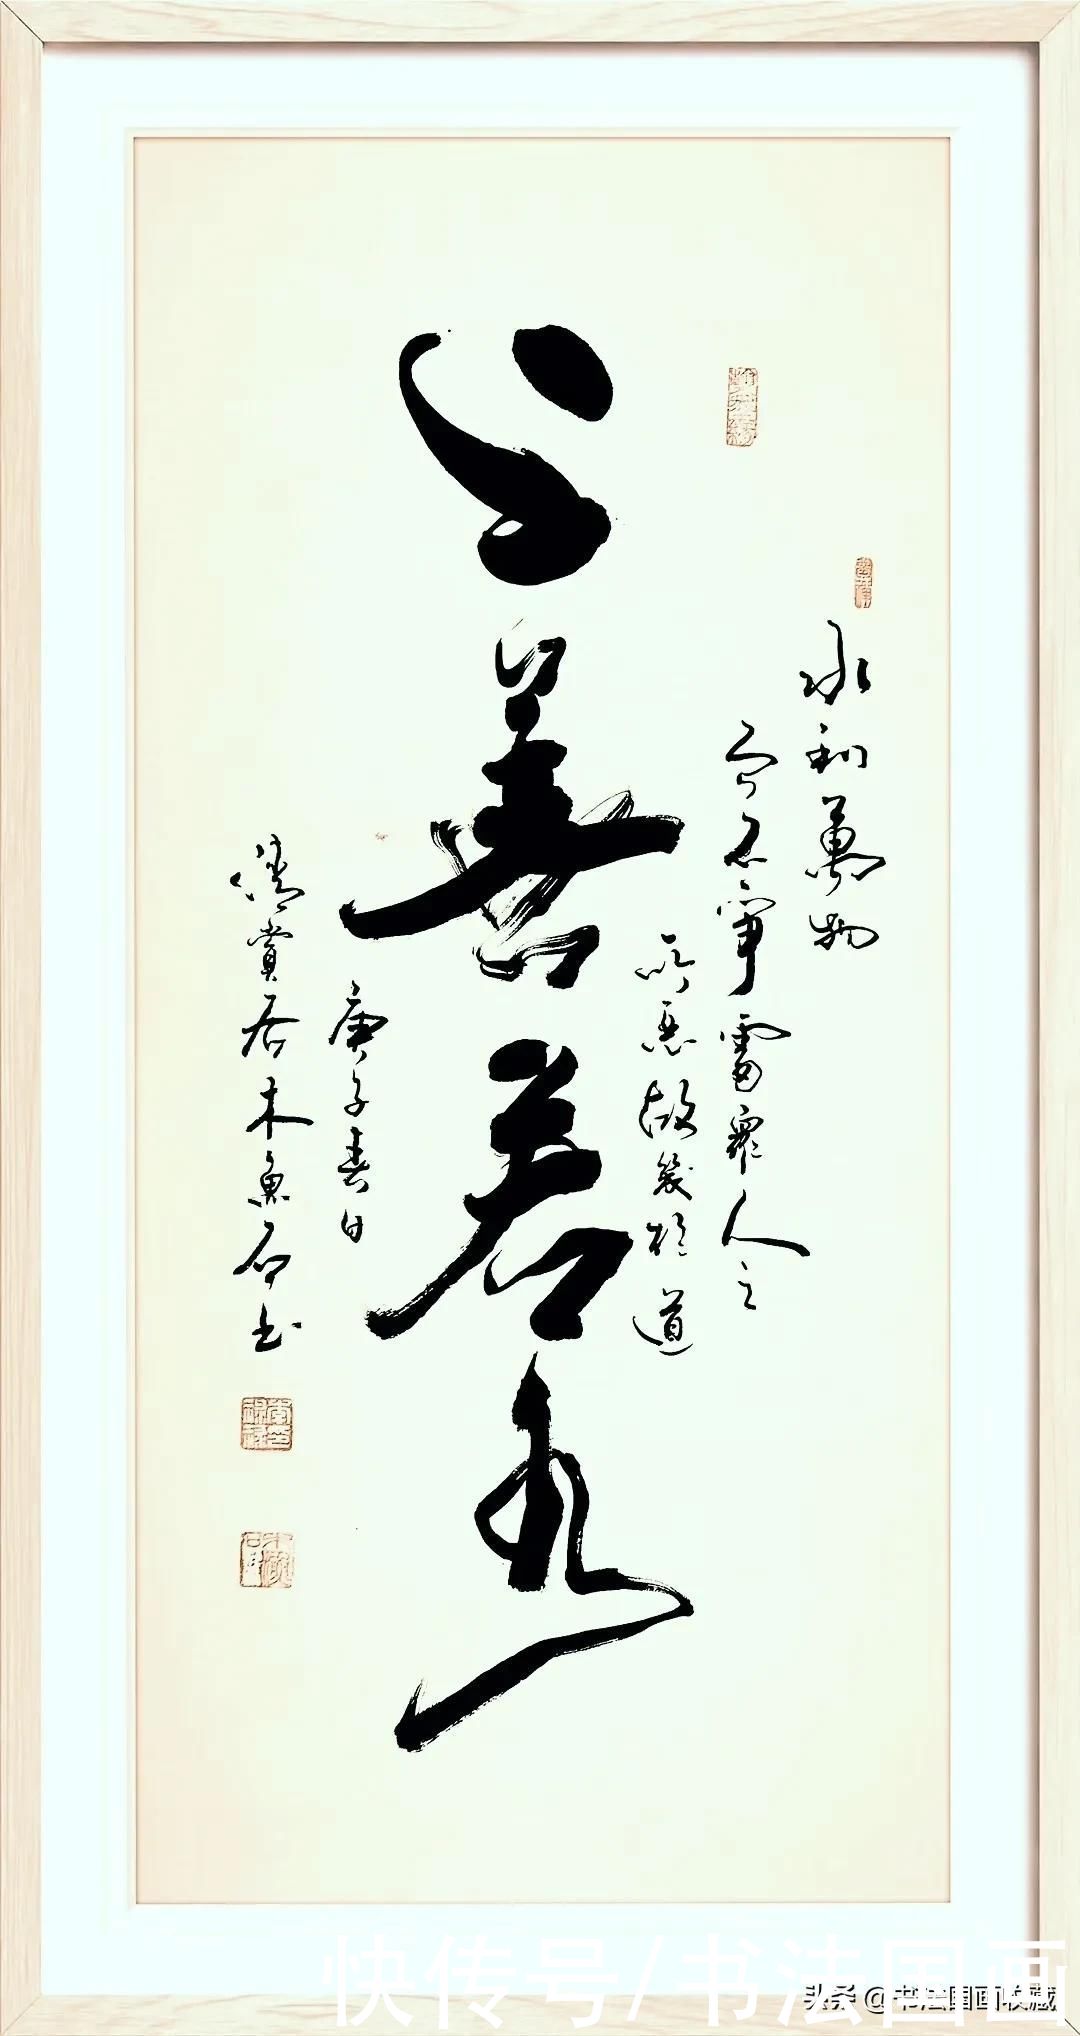 水利萬物
而不爭處眾人之
所惡故幾於道
上善若水
庚子春日
清賞居木魚石书
快传号/书法国画
头条 @书法国画收藏